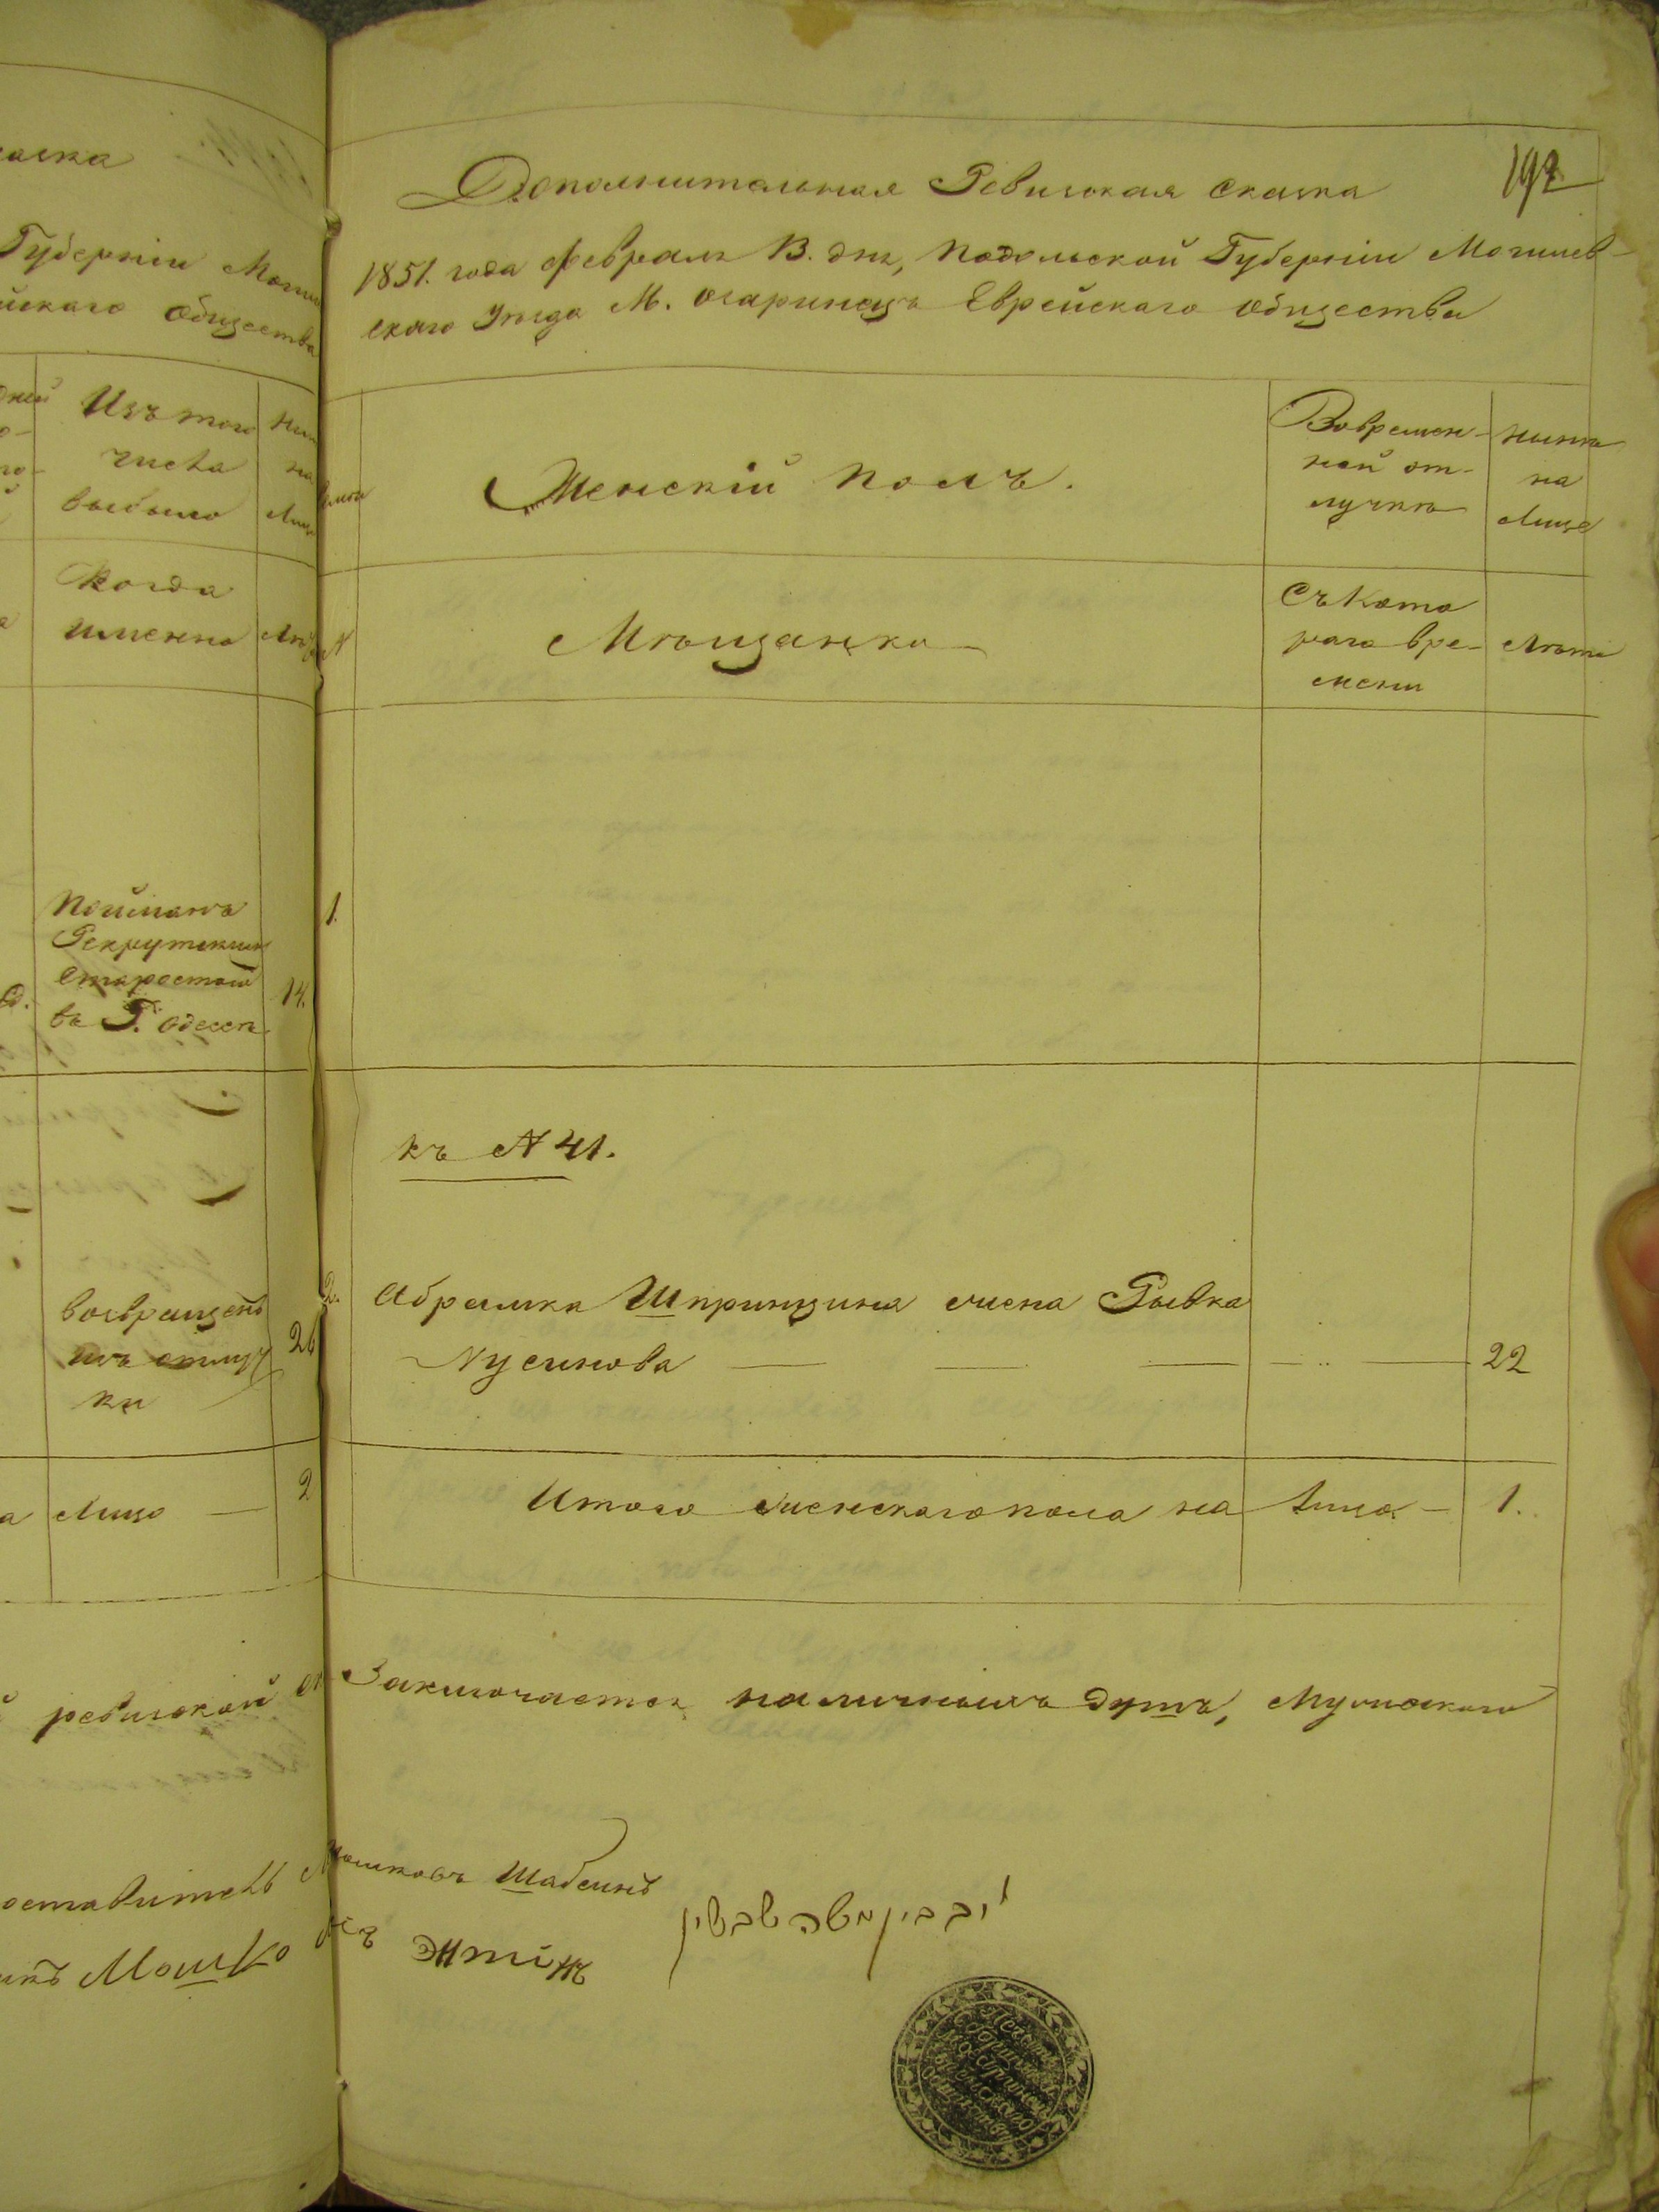 аска
Губернiи Моги
йскаго Общества
Изъ того
числа
выбыло
Когда
именно
Пойманъ
Рекрутскимъ
Старостою
въ Г. Одессѣ
14.
возвращенъ
изъ отлуч
ки
26
а Лицо — 2
ревизской
оставитель
Мошко
197
Дополнительная Ревизская сказка
1851. года Февраля 13. дня, Подольской Губернiи Могилев-
скаго Уѣзда М. Озаринецъ Еврейскаго Общества
Женскiй полъ.
Вовремен-
ной от-
лучкѣ
нынѣ
на
Лице
№
Мѣщанки
Съ Кото
раго вре-
мени
Лѣта
1.
къ № 41.
2. Абрамка Шпринцина жена Рывка
Нусинова — — — — 22
Итого женскаго пола на Лицо — 1.
Заключается наличныхъ душъ, Мужскаго
Мошковъ Шабсинъ
Энтiнъ